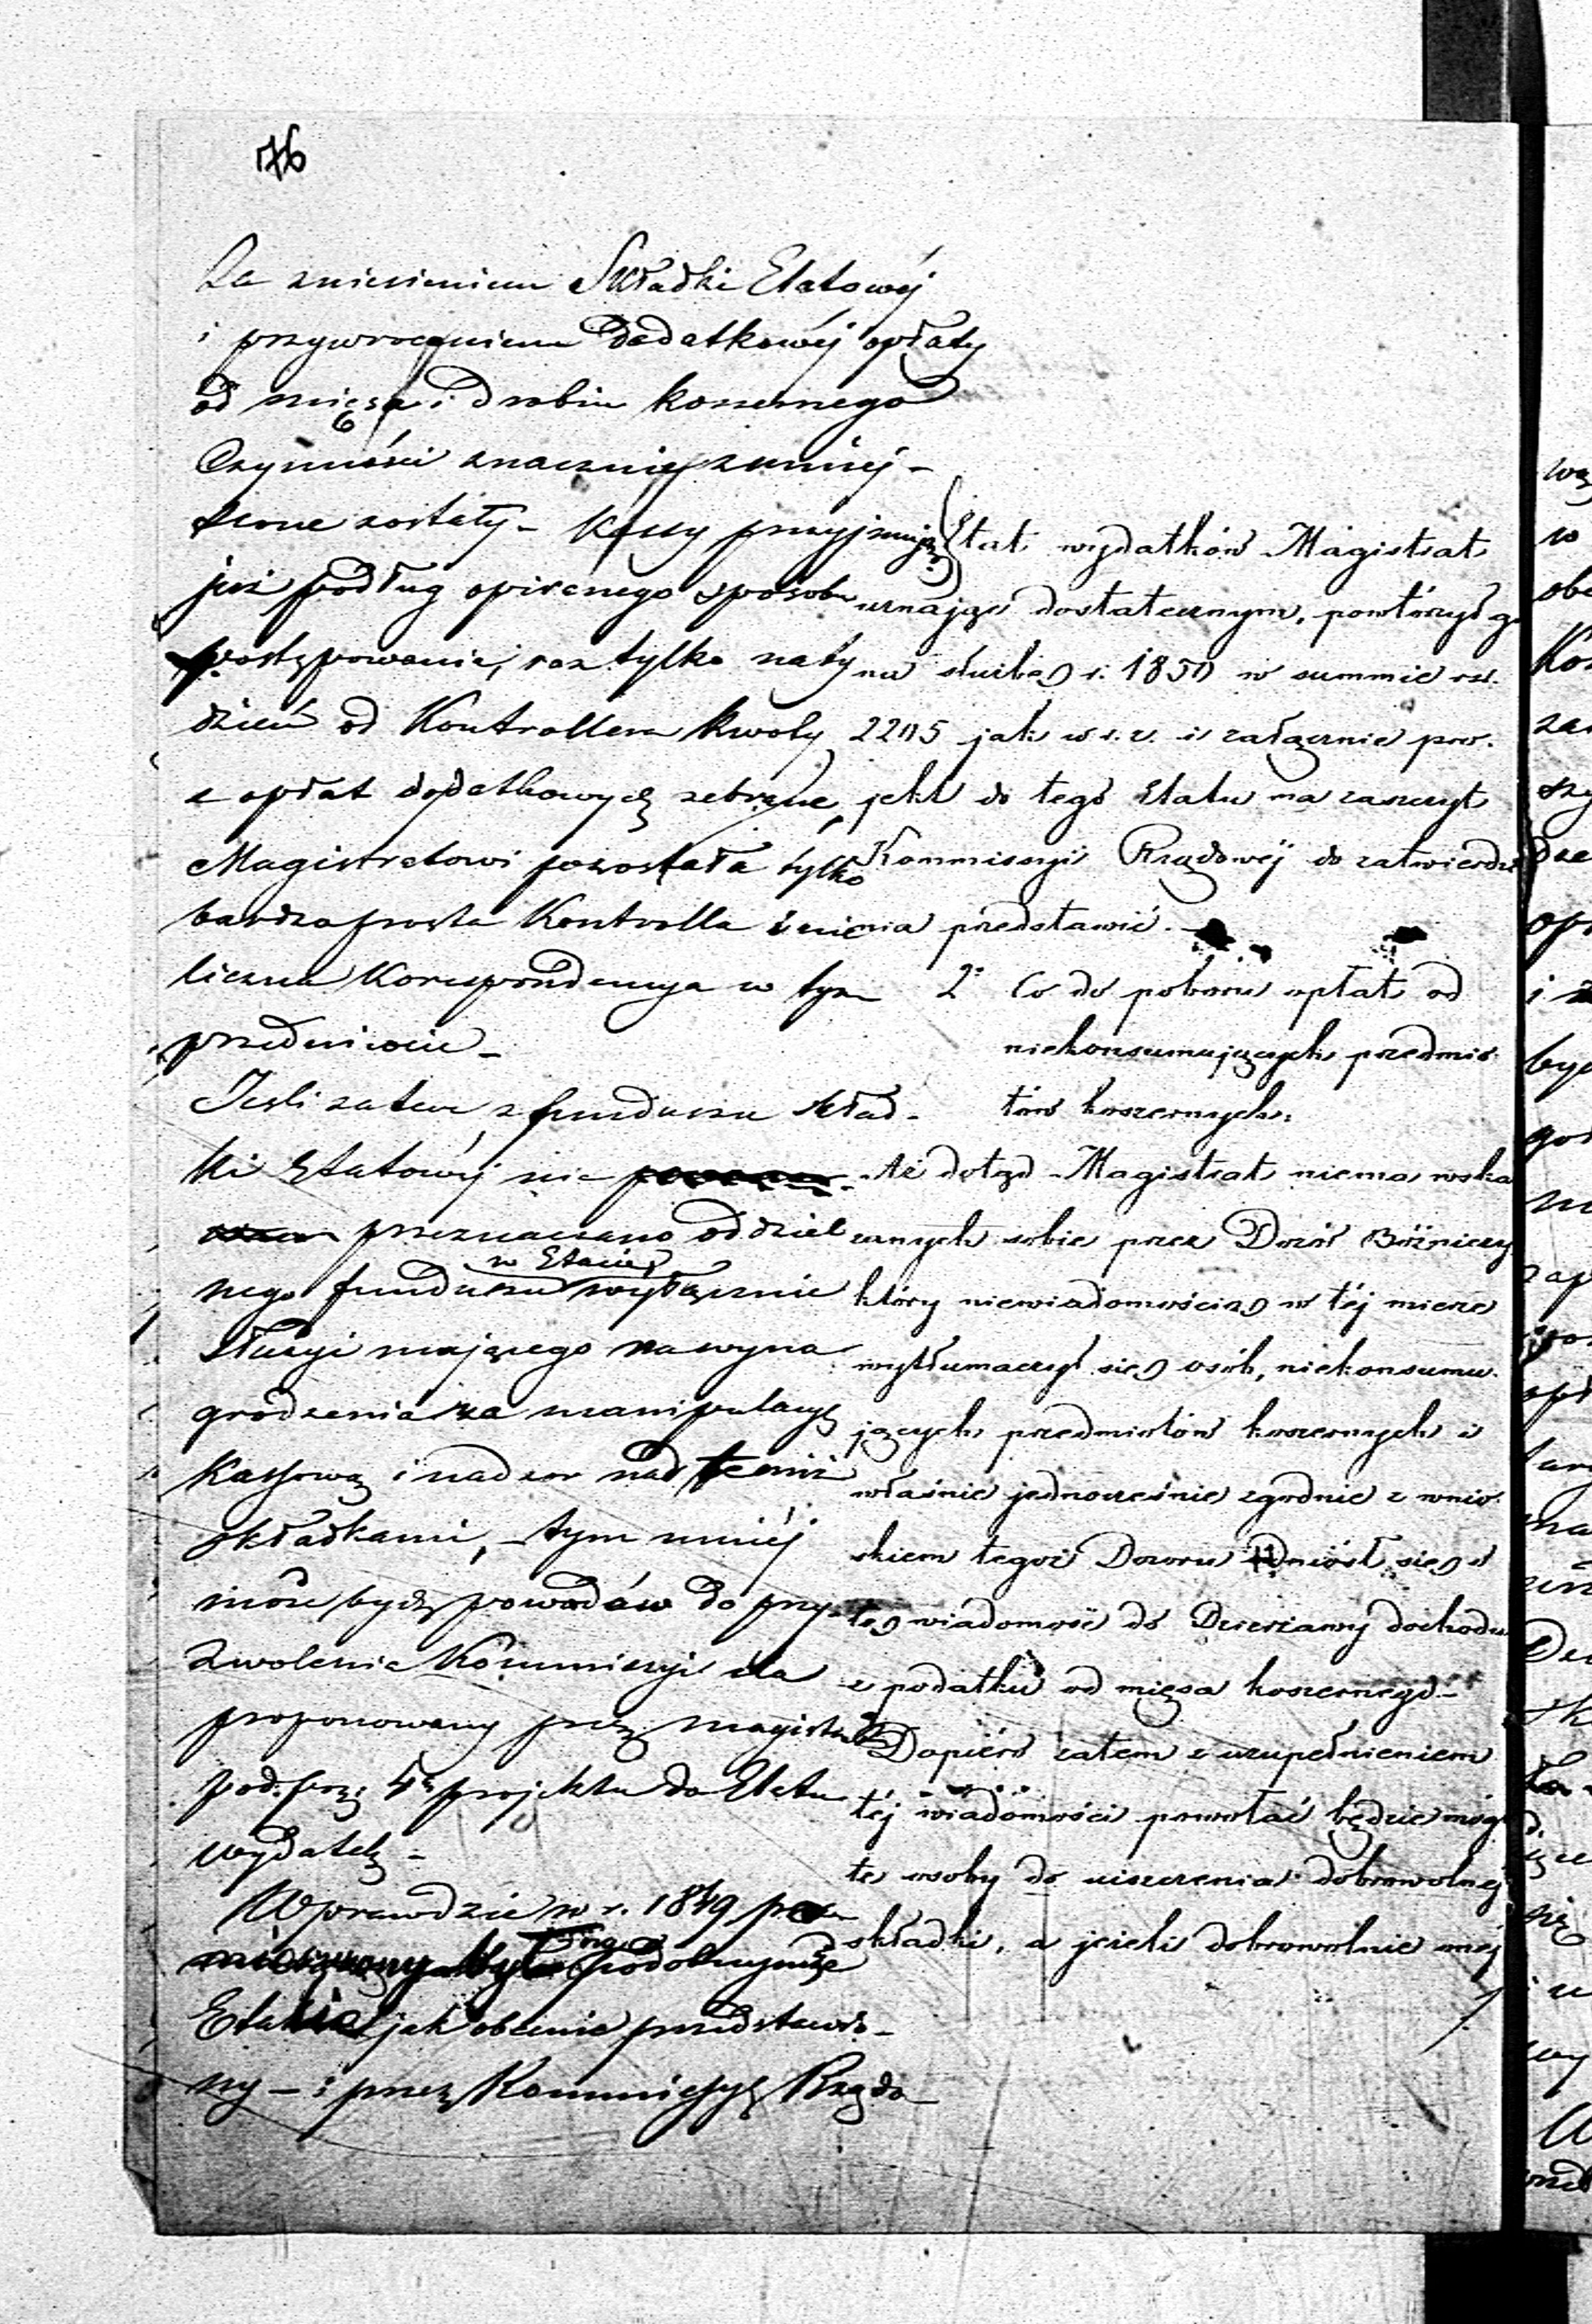 176
Za zniesieniem Składki Etatowéj
i przywroceniem dodatkowéj opłaty
od mięsa i drobiu koszernego
Czynności znacznie zmniéj-
szone zostały - Kassy przyjmują
już podług opisanego sposobu
postępowania, raz tylko na ty
dzień od Kontrollera kwoty
z opłat dodatkowych zebrane,
Magistratowi pozostała tylko
bardzo prosta Kontrolla i nie
liczna Korrespondencya w tym
przedmiocie -
Jeśli zatem z funduszu Skład-
ki Etatowéj nie
przeznaczano oddziel
w Etacie
nego funduszu wyłącznie
służyć mającego na wyna
grodzenia za manipulacyę
Kassową i nadzor nad temiż
składkami, - tym mniéj
może być powodów do przy-
zwolenia Kommissyi na
proponowany przez magistrat
pod poz: 4 projektu do Etatu
wydatek -
Wprawdzie w r. 1849
podobnymże
Etacie jak obecnie przedstawio-
ny - i przez Kommissyę Rządo
Etat wydatków Magistrat
uznając dostatecznym, powtórzył go
na służbę r. 1850 w summie rsr.
2205 jak w r. z. i załącznie pro-
jekt do tego Etatu ma zaszczyt
Kommissyi Rządowéj do zatwierdze
nia przedstawić. -
2° Co do poboru opłat od
niekonsumujących przedmio-
tów koszernych:
Że dotąd Magistrat niema wska
zanych sobie przez Dozór Bóżniczy
który niewiadomością w téj mierze
wytłumaczył się osób, niekonsumu-
jących przedmiotów koszernych i
właśnie jednocześnie zgodnie z wnio-
skiem tegoż Dozoru odniósł się o
tę wiadomość do Dzierżawy dochodu
z podatku od mięsa koszernego -
Dopiéro zatem z uzupełnieniem
téj wiadomości powołać będzie mógł
te osoby do uiszczenia dobrowolnéj
składki, a jeżeli dobrowolnie